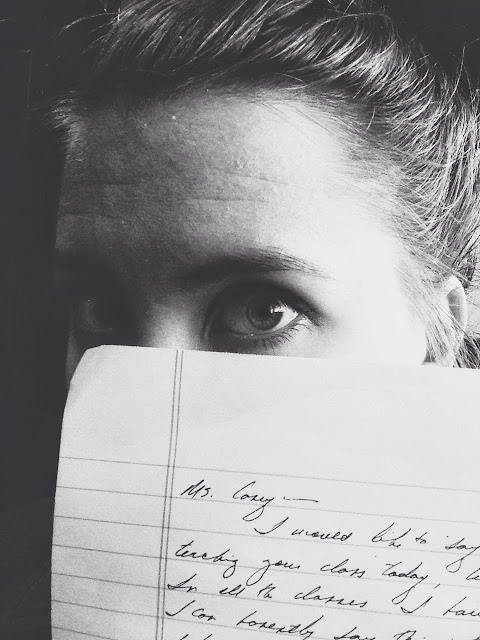 Ms. Corey —
I would like to say
teaching your class today,
In all the classes I have
I can honestly say this